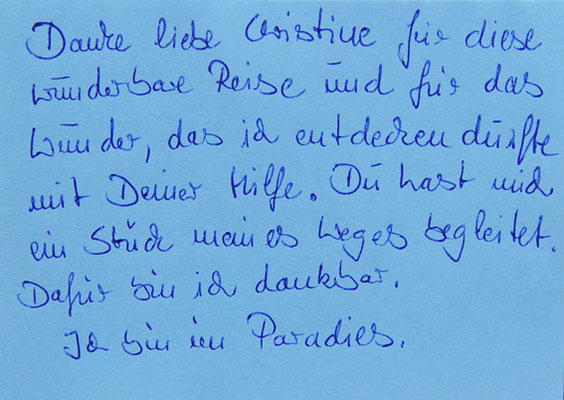 Danke liebe Christine für diese
wunderbare Reise und für das
Wunder, das ich entdecken durfte
mit Deiner Hilfe. Du hast mich
ein Stück meines Weges begleitet.
Dafür bin ich dankbar.
Ich bin im Paradies.